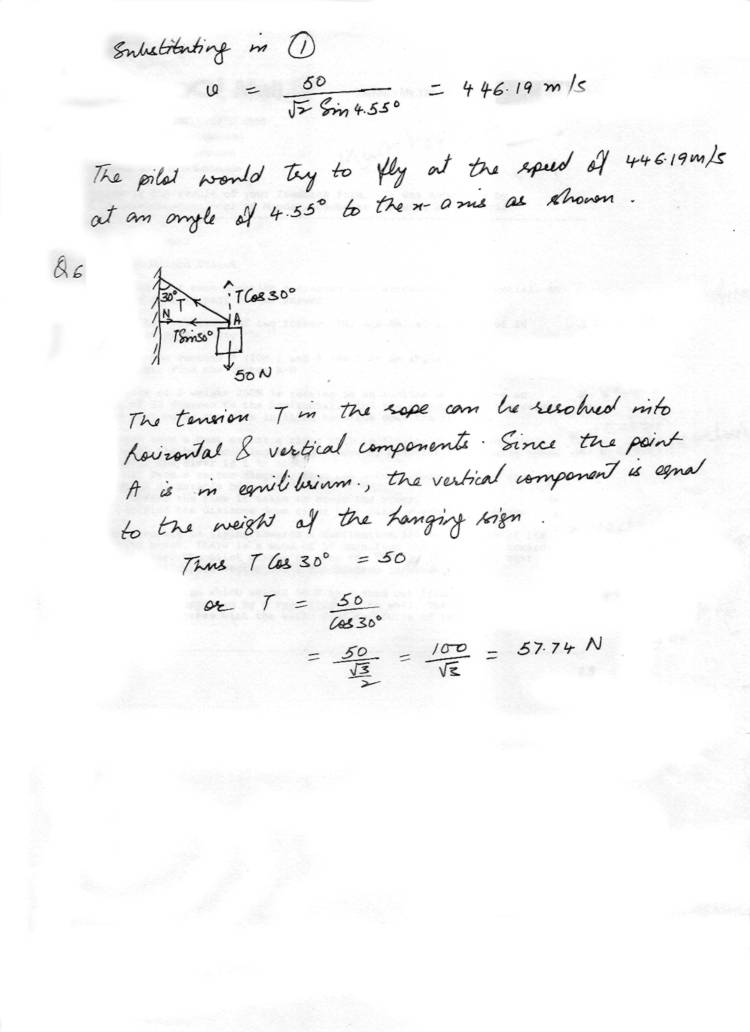 Substituting in ①
v = 50 / √2 Sin 4.55° = 446.19 m/s
The pilot would try to fly at the speed of 446.19 m/s
at an angle of 4.55° to the x-axis as shown.
Q6
30°
T
T Cos 30°
N
A
T Sin 30°
50 N
The tension T in the rope can be resolved into
horizontal & vertical components. Since the point
A is in equilibrium., the vertical component is equal
to the weight of the hanging sign.
Thus T Cos 30° = 50
or T = 50 / Cos 30°
= 50 / (√3 / 2) = 100 / √3 = 57.74 N